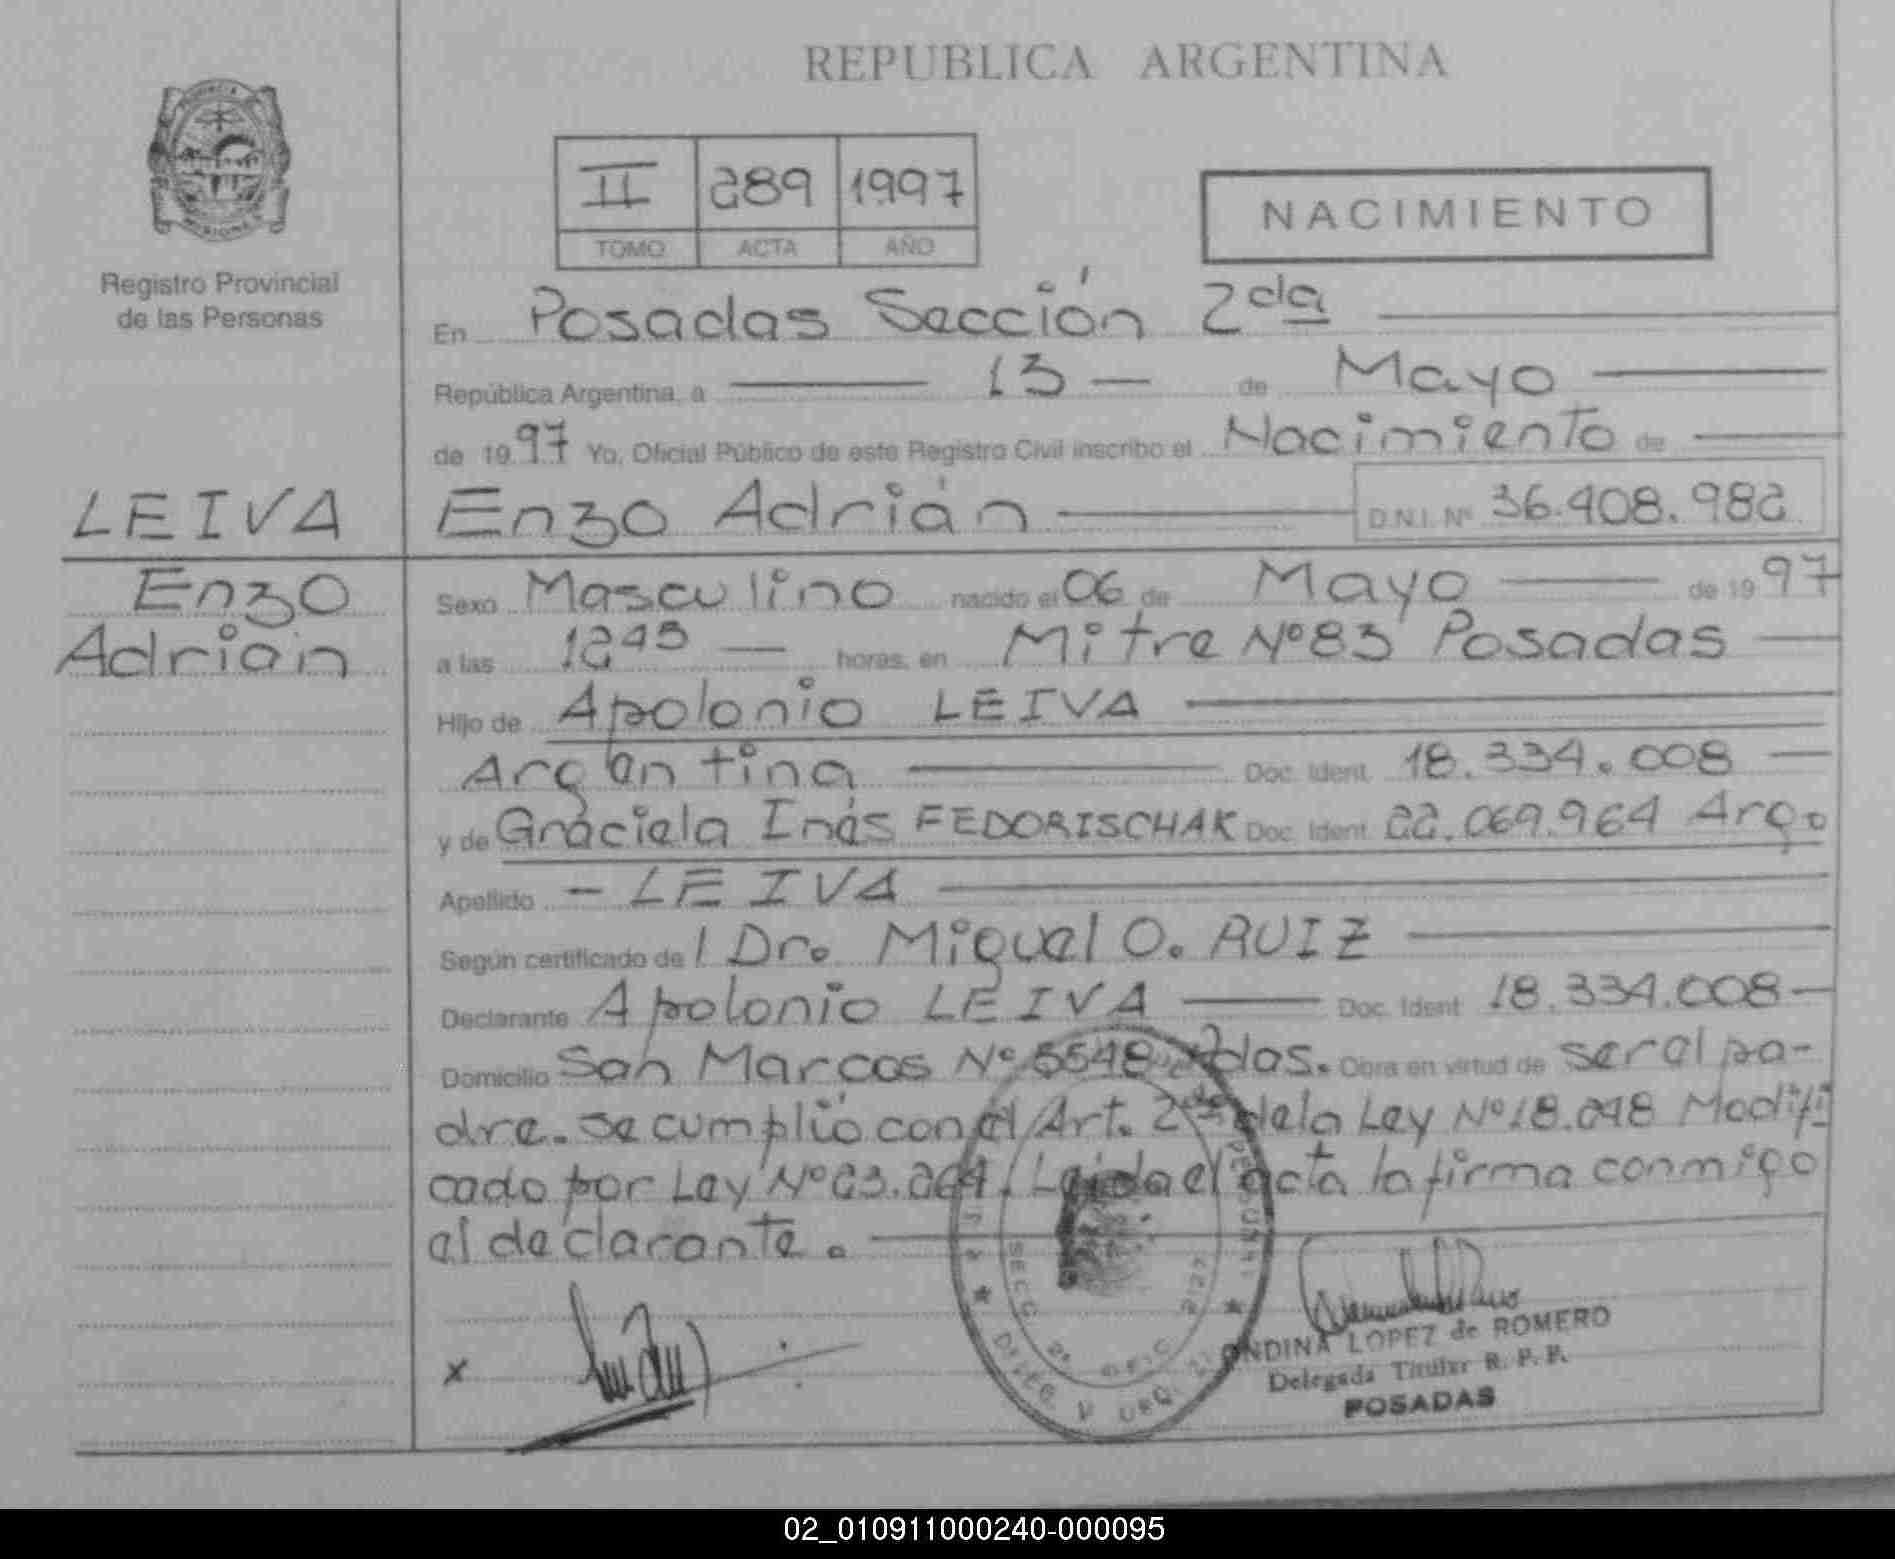 REPUBLICA ARGENTINA
II 289 1997
TOMO ACTA AÑO
NACIMIENTO
Registro Provincial
de las Personas
En Posadas Sección 2da
República Argentina, a 13 de Mayo
de 1997 Yo, Oficial Público de este Registro Civil inscribo el Nacimiento de
LEIVA Enzo Adrián D.N.I. Nº 36.408.982
Enzo
Adrián
Sexo Masculino nacido el 06 de Mayo de 1997
a las 1245 horas, en Mitre Nº 83 Posadas
Hijo de Apolonio LEIVA
Argentina Doc. Ident. 18.334.008
y de Graciela Inés FEDORISCHAK Doc. Ident. 22.069.964 Arg.
Apellido - LEIVA
Según certificado de l Dr. Miguel O. RUIZ
Declarante Apolonio LEIVA Doc. Ident. 18.334.008
Domicilio San Marcos Nº 5548 Pdas. Obra en virtud de ser el pa-
dre. se cumplió con el Art. 2do de la Ley Nº 18.248 Modifi
cado por Ley Nº 23.264. Leida el acta la firma conmigo
el declarante.
x
LOPEZ de ROMERO
Delegada Titular R. P. P.
POSADAS
02_010911000240-000095